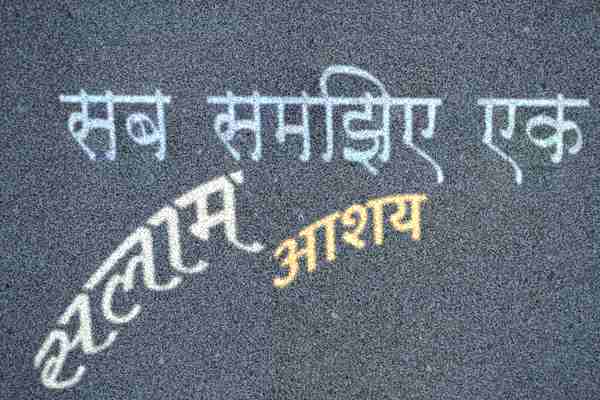 सब समझिए एक
सलाम
आशय